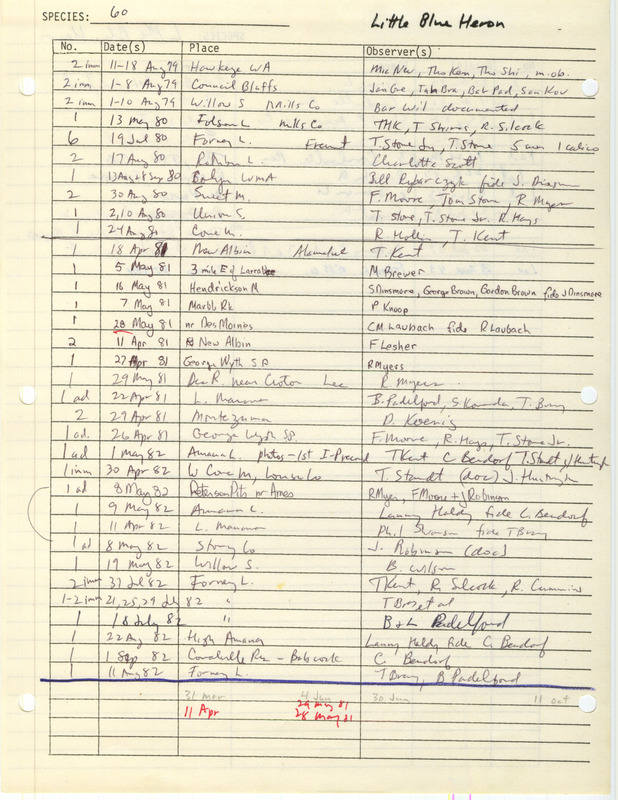 SPECIES: 60 Little Blue Heron
No. Date(s) Place Observer(s)
2 imm 11-18 Aug 79 Hawkeye WA Mic New, Tho Ken, Tho Shi, m.ob.
2 imm 1-8 Aug 79 Council Bluffs Bab Pad,
2 imm 1-10 Aug 79 Willow S Mills Co Bar Wil documented
1 13 May 80 Folsom L. Mills Co THK, T. Shires, R. Silcock
6 19 Jul 80 Forney L. Fremont T. Stone Jr, T. Stone 5 imm 1 calico
2 17 Aug 80 Charlotte Scott
1 Sep 80 WMA Bill Rybarczyk fide J. Dinsmore
2 30 Aug 80 Sweet M. F. Moore, Tom Stone, R Myers
1 2,10 Aug 80 Union S. T. Stone, T. Stone Jr. R. Hays
1 24 Aug 80 Cone M. R Hollis, T. Kent
1 18 Apr 81 New Albin Allamakee T. Kent
1 5 May 81 3 mile E of Larrabee M Brewer
1 16 May 81 Hendrickson M S Dinsmore, George Brown, Gordon Brown fide J Dinsmore
1 7 May 81 Marble Rk P Knoop
1 28 May 81 nr Des Moines CM Laubach fide R Laubach
2 11 Apr 81 New Albin F Lesher
1 27 Apr 81 George Wyth S P R Myers
1 29 May 81 Des R. near Croton Lee R Myers
1 ad 22 Apr 81 L. Manawa B. Padelford, T. Bray
2 29 Apr 81 Montezuma D. Koenig
1 ad. 26 Apr 81 George Wyth SP. F. Moore, R. Hays, T. Stone Jr.
1 ad 1 May 82 Amana L. photos - 1st I-Record T Kent C Bendorf T. Staudt, J Huntington
1 imm 30 Apr 82 W Cone M, Louisa Co T. Staudt (doc) J. Huntington
1 ad 8 May 82 Peterson Pits nr Ames R Myers, F Moore + J Robinson
1 9 May 82 Amana L. Lanny Haldy fide C. Bendorf
1 11 Apr 82 L. Manawa Phil Swanson fide T Bray
1 ad 8 May 82 Story Co J. Robinson (doc)
1 19 May 82 Willow S. B. Wilson
2 imm 31 Jul 82 Forney L. T Kent, R. Silcock, R. Cummins
1-2 imm 21, 25, 29 July 82 " T Bray et al
1 18 July 82 " B + L Padelford
1 22 Aug 82 High Amana Lanny Haldy fide C. Bendorf
1 1 Sep 82 Coralville Res - Babcock C. Bendorf
1 11 Aug 82 Forney L. T Bray, B Padelford
31 Mar 4 Jun 30 Jun 11 Oct
11 Apr 29 May 81
28 May 81